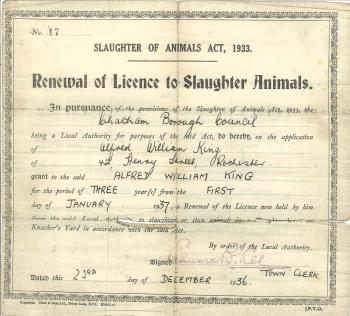 No. 17
SLAUGHTER OF ANIMALS ACT, 1933.
Renewal of Licence to Slaughter Animals.
In pursuance of the provisions of the Slaughter of Animals Act, 1933, the
Chatham Borough Council
being a Local Authority for purposes of the said Act, do hereby, on the application
of Alfred William King
of 42, Henry Street, Rochester
grant to the said ALFRED WILLIAM KING
for the period of THREE year(s) from the FIRST
day of JANUARY 1937, a Renewal of the Licence now held by
him from the said Local Authority to slaughter or stun animals in
Knacker's Yard in accordance with the said Act.
By order of the Local Authority.
Signed
TOWN CLERK
Dated this 23RD day of DECEMBER 1936.
[P.T.O.